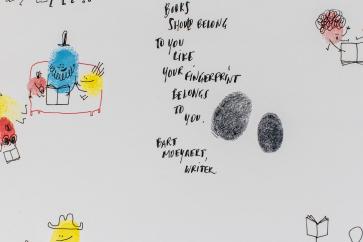 BOOKS
SHOULD BELONG
TO YOU
LIKE
YOUR FINGERPRINT
BELONGS
TO
YOU.
BART
MOEYAERT,
WRITER